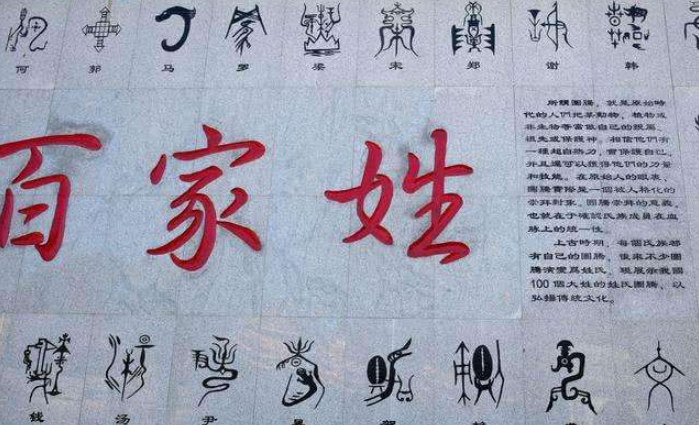 何 郭 马 罗 梁 宋 郑 谢 韩
百家姓
所謂圖騰，就是原始時
代的人們把某動物，植物或
非生物等當做自己的親屬、
祖先或保護神。相信他們有
一種超自然力，會保護自己，
并且還可以獲得他們的力量
和技能。在原始人的眼裏，
圖騰實際是一個被人格化的
崇拜對象。圖騰崇拜的意義，
也就在于確認氏族成員在血
統上的統一性。
上古時期，每個氏族都
有自己的圖騰，後來不少圖
騰演變爲姓氏，現展示我國
100個大姓的姓氏圖騰，以
弘揚傳統文化。
钱 汤 尹